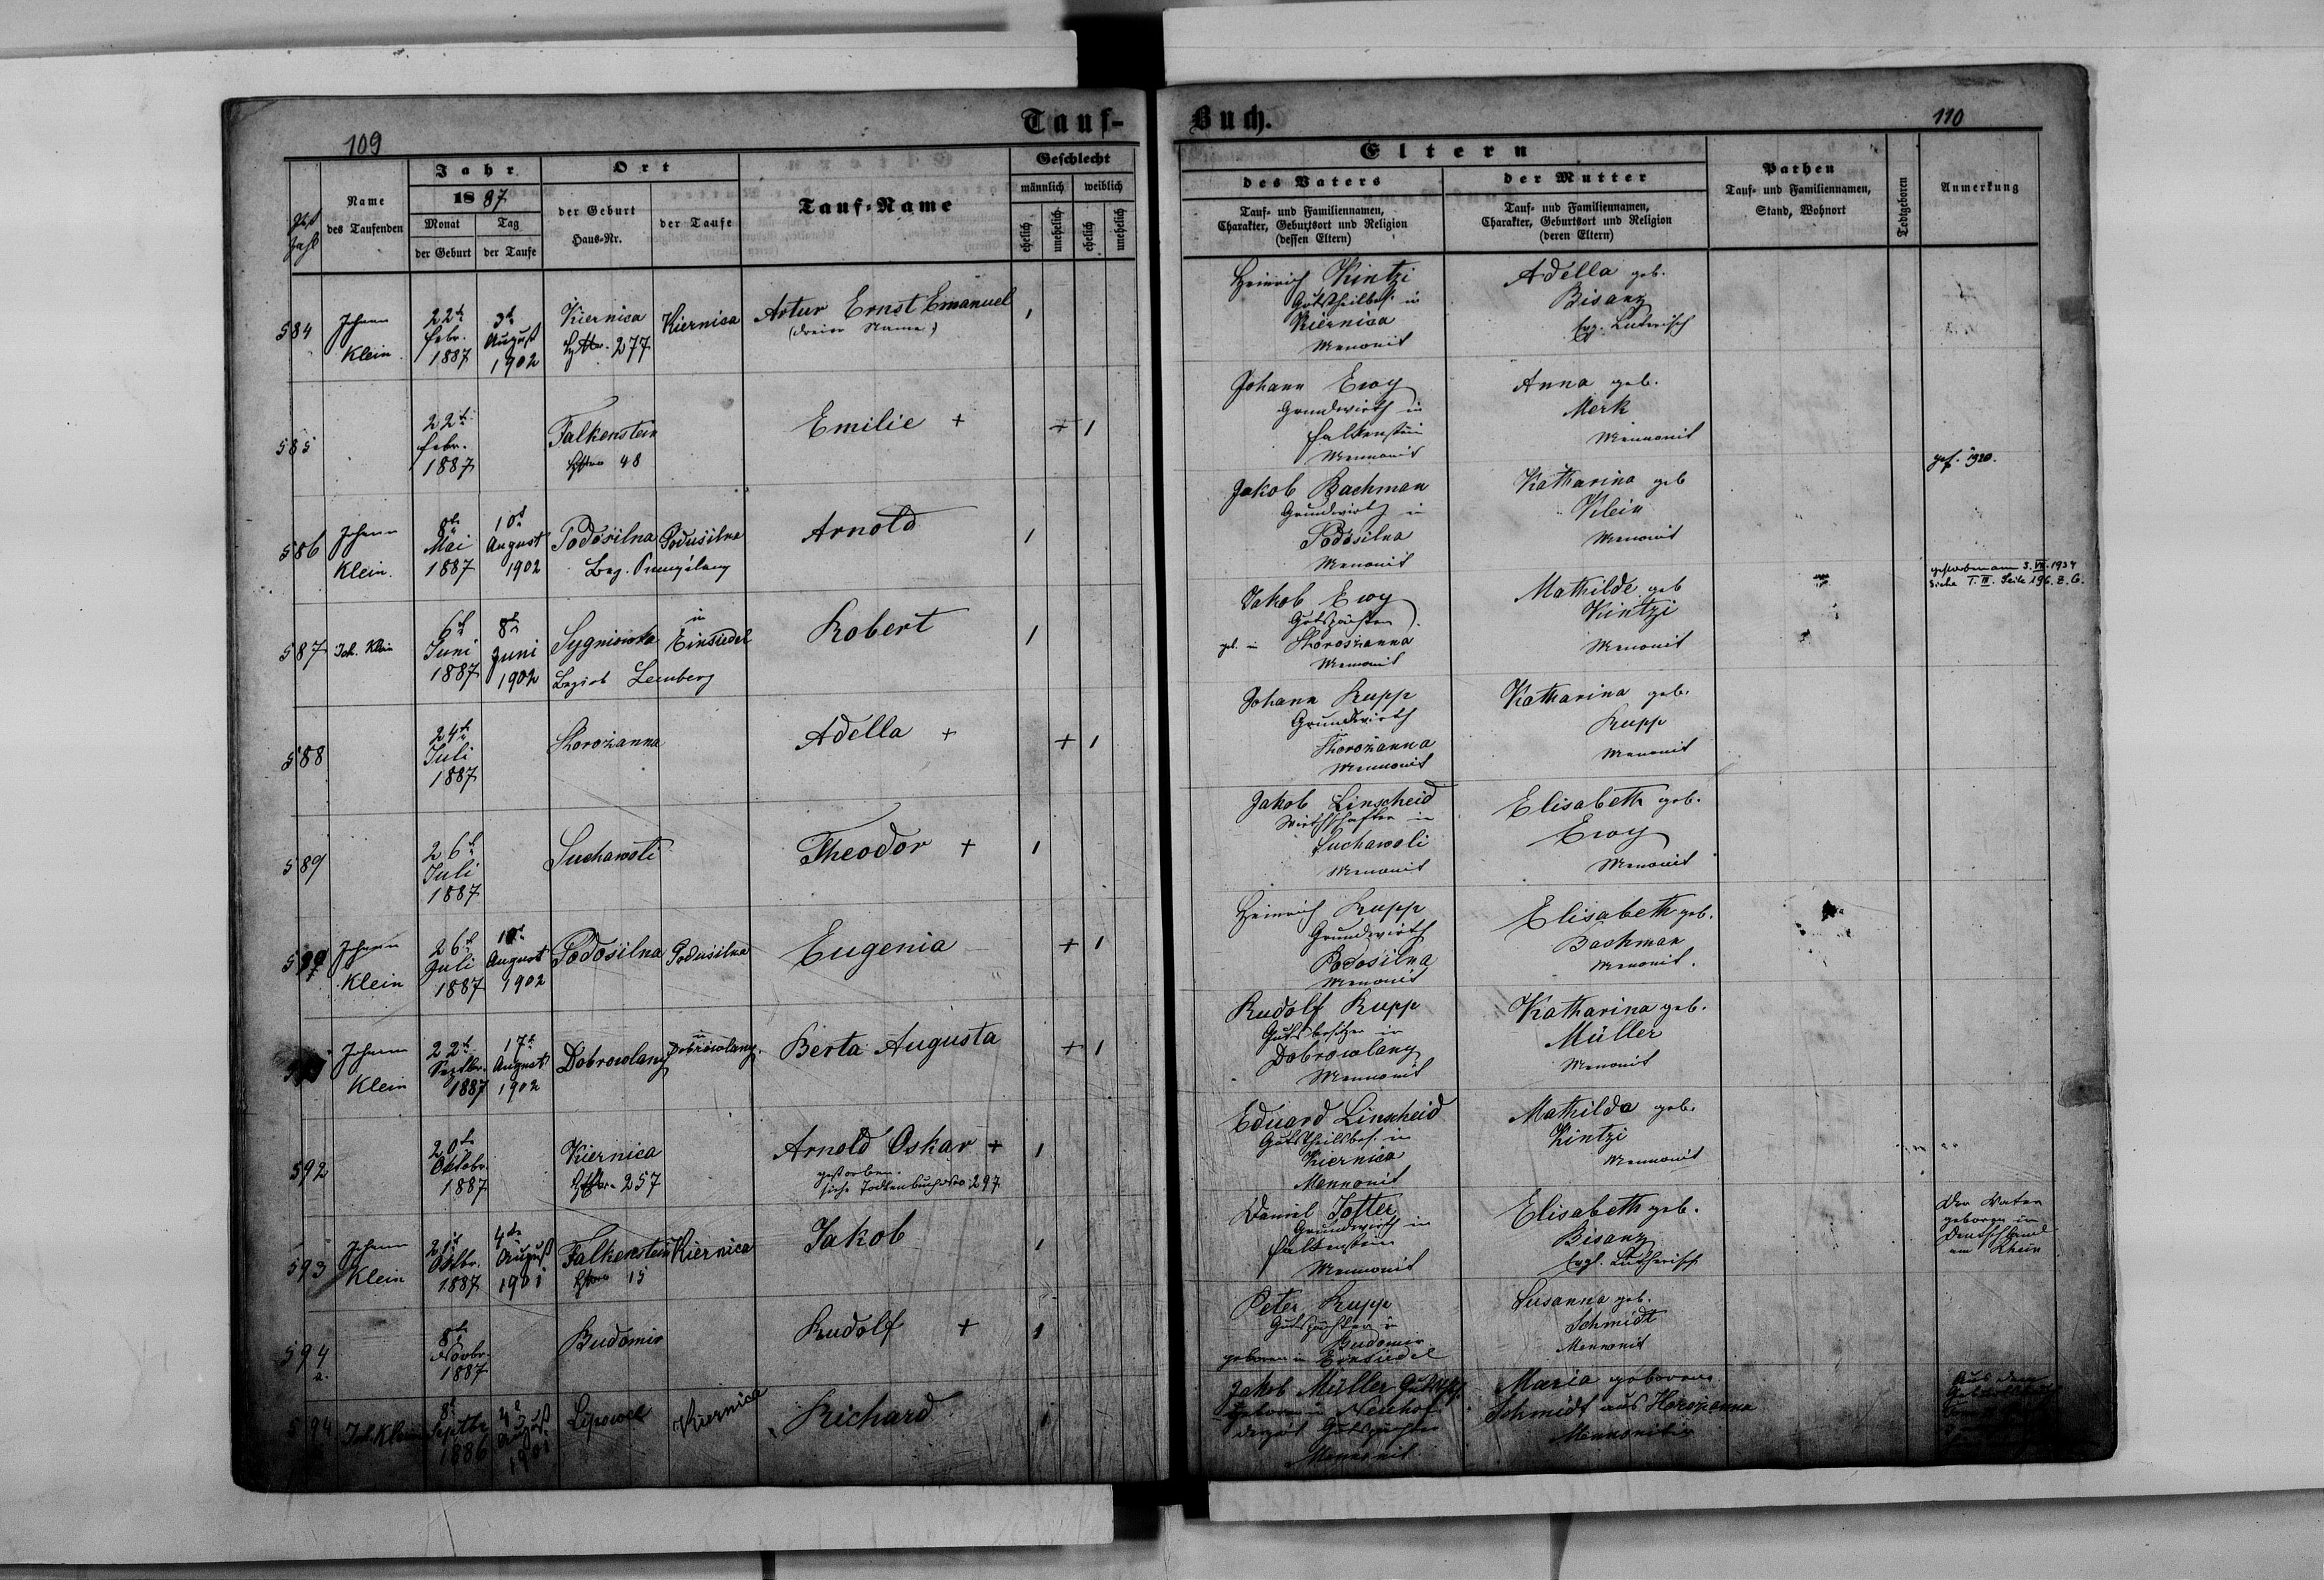 Tauf-
Buch.
109
110
Jahr
1887
Ort
Geschlecht
Name
des Taufenden
Monat
Tag
der Geburt
der Taufe
der Geburt
Haus-Nr.
der Taufe
Tauf-Name
männlich
weiblich
ehelich
unehelich
ehelich
unehelich
Eltern
des Vaters
der Mutter
Tauf- und Familiennamen,
Charakter, Geburtsort und Religion
(dessen Eltern)
Tauf- und Familiennamen,
Charakter, Geburtsort und Religion
(deren Eltern)
Pathen
Tauf- und Familiennamen,
Stand, Wohnort
Todtgeboren
Anmerkung
584
Johann
Klein
22t
Febr.
1887
3t
August
1902
Kiernica
277
Kiernica
Artur Ernst Emanuel
(dreier Name)
Heinrich Kintzi
Gutstheilbes. in
Kiernica
Menonit
Adella geb.
Bisanz
Evg. Luterisch
585
22t
Febr.
1887
Falkenstein
48
Emilie +
+
Johann Ewy
Grundwirth in
Falkenstein
Mennonit
Anna geb.
Merk
Mennonit
586
Johann
Klein.
8t
Mai
1887
10t
August
1902
Podosilna
Podusilna
Arnold
Jakob Bachman
Grundwirth in
Podosilna
Menonit
Katharina geb
Klein
Menonit
gest. 1920.
587
Joh. Klein
6t
Juni
1887
8t
Juni
1902
Sygniowka
Bezirk Lemberg
in
Einsiedel
Robert
Jakob Ewy
Gutspächter
geb. in Horożanna
Mennonit
Mathilde geb
Kintzi
Menonit
gestorben am 3. VII. 1934
Siehe T. III. Seite 196. Z. 6.
588
24t
Juli
1887
Horożanna
Adella +
+
Johann Rupp
Grundwirth
in Horożanna
Mennonit
Katharina geb.
Rupp
Menonit
589
26t
Juli
1887
Suchawoli
Theodor +
Jakob Linscheid
Wirthschafter in
Suchawoli
Menonit
Elisabeth geb.
Ewy
Menonit
590
Johann
Klein
26t
Juli
1887
10t
August
1902
Podosilna
Podusilna
Eugenia
+
Heinrich Rupp
Grundwirth
Podosilna
Menonit
Elisabeth geb.
Bachman
Menonit.
Johann
Klein
22t
Septbr.
1887
17t
August
1902
Dobrowlany
in
Dobrowlany.
Berta Augusta
+
Rudolf Rupp
Gutsbesitzer in
Dobrowlany
Mennonit
Katharina geb.
Müller
Menonit
592
20t
Oktobr.
1887
Kiernica
257
Arnold Oskar +
gestorben.
siehe Todtenbuch No. 297
Eduard Linscheid
Gutstheilsbes. in
Kiernica
Mennonit
Mathilda geb.
Kintzi
Mennonit
593
Johann
Klein
21t
Oktbr.
1887
4te
August
1901
Falkenstein
15
Kiernica
Jakob
Daniel Jotter
Grundwirth in
Falkenstein
Mennonit
Elisabeth geb.
Bisanz
Evgl. Lutherisch
Der Vater
geboren in
Deutschland
am Rhein
594
a.
8t
Novbr.
1887
Budomir
Rudolf +
Peter Rupp
Gutspächter in
Budomir
geboren in Einsiedel
Susanna geb.
Schmidt
Mennonit
594
Joh. Klein
8t
Septbr
1886
4t
August
1901
Lipowce
Kiernica
Richard
Jakob Müller
geboren in Neuhof
derzeit Gutspächter
Mennonit
Maria geborene
Schmidt aus Horożanna
Mennonitin
Aus dem